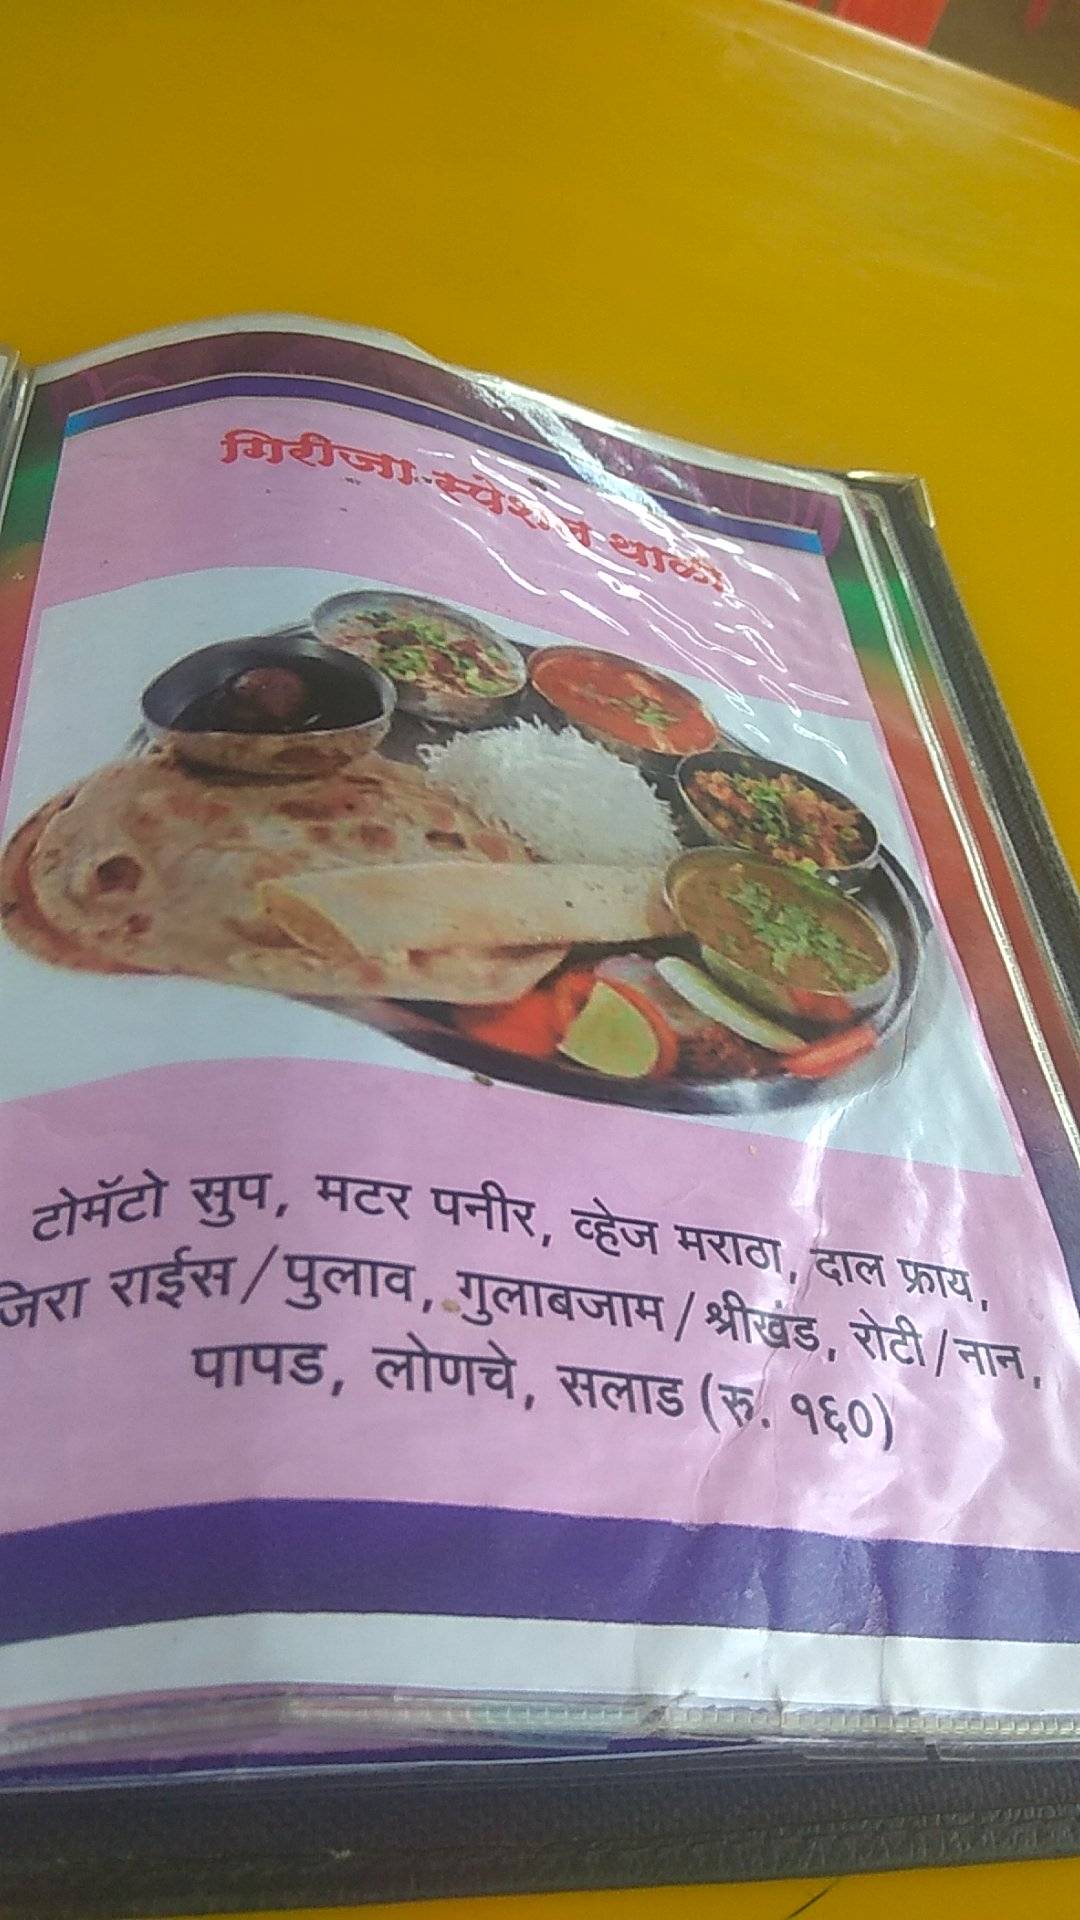 गिरीजा स्पेशल थाळी
टोमॅटो सुप, मटर पनीर, व्हेज मराठा, दाल फ्राय,
जिरा राईस/पुलाव, गुलाबजाम/श्रीखंड, रोटी/नान,
पापड, लोणचे, सलाड (रु. १६०)